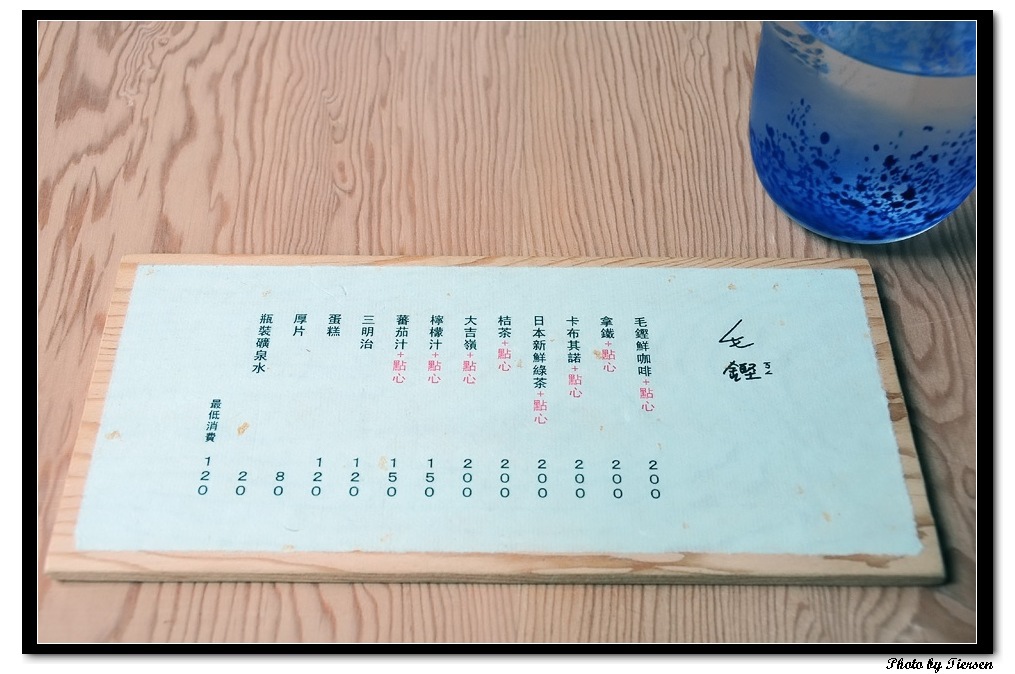 毛鏗
毛鏗鮮咖啡+點心 200
拿鐵+點心 200
卡布其諾+點心 200
日本新鮮綠茶+點心 200
桔茶+點心 200
大吉嶺+點心 200
檸檬汁+點心 150
蕃茄汁+點心 150
三明治 120
蛋糕 120
厚片 80
瓶裝礦泉水 20
最低消費 120
Photo by Tiersen